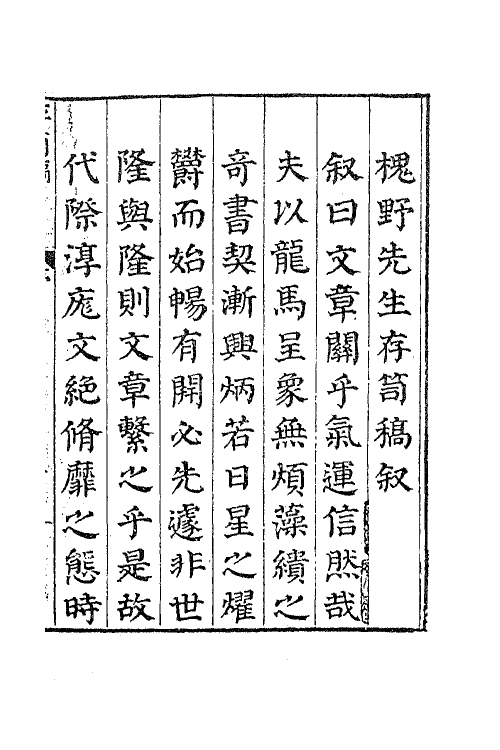 槐野先生存笥稿叙
叙曰文章關乎氣運信然哉
夫以龍馬呈象無煩藻繢之
奇書契漸興炳若日星之燿
欝而始暢有開必先遽非世
隆與隆則文章繫之乎是故
代際淳庬文絶脩靡之態時